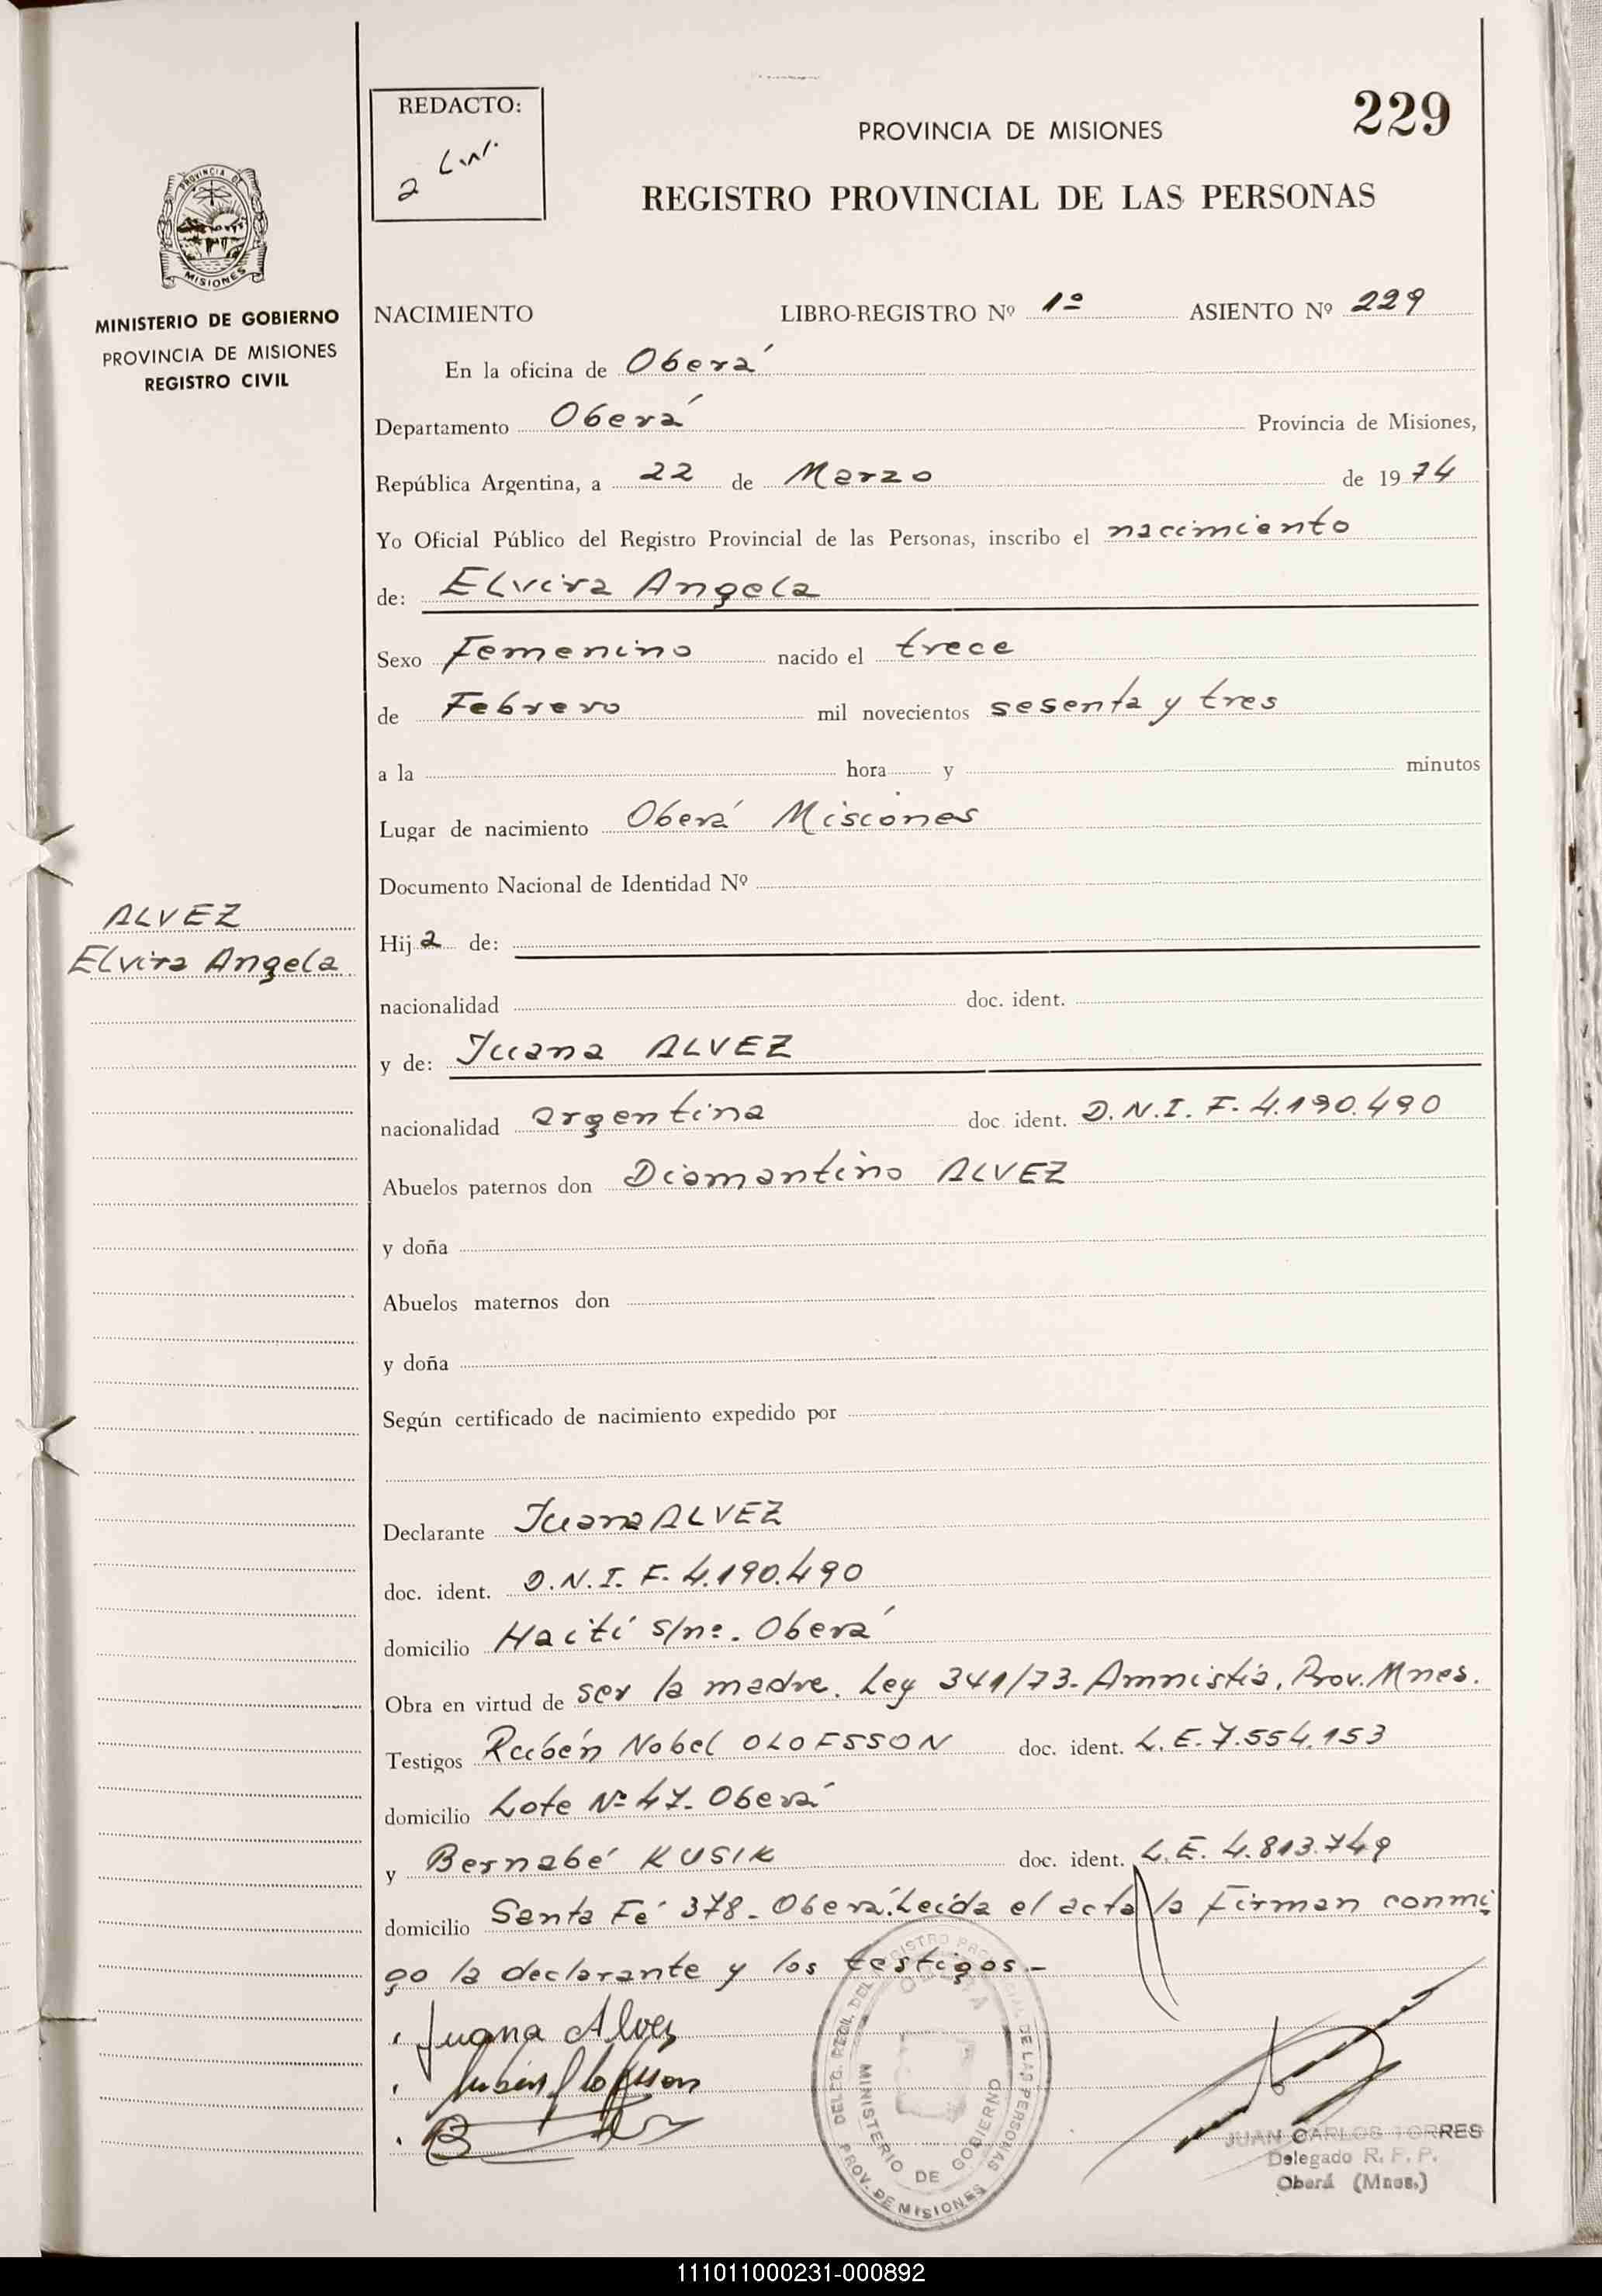 REDACTO:
229
PROVINCIA DE MISIONES
REGISTRO PROVINCIAL DE LAS PERSONAS
PROVINCIA DE
MISIONES
MINISTERIO DE GOBIERNO
PROVINCIA DE MISIONES
REGISTRO CIVIL
NACIMIENTO LIBRO-REGISTRO Nº 1º ASIENTO Nº 229
En la oficina de Oberá
Departamento Oberá Provincia de Misiones,
República Argentina, a 22 de Marzo de 1974
Yo Oficial Público del Registro Provincial de las Personas, inscribo el nacimiento
de: Elvira Angela
Sexo Femenino nacido el trece
de Febrero mil novecientos sesenta y tres
a la hora y minutos
Lugar de nacimiento Oberá Misiones
Documento Nacional de Identidad Nº
ALVEZ
Elvira Angela
Hija de:
nacionalidad doc. ident.
y de: Juana ALVEZ
nacionalidad argentina doc. ident. D.N.I. F. 4.190.490
Abuelos paternos don Diamantino ALVEZ
y doña
Abuelos maternos don
y doña
Según certificado de nacimiento expedido por
Declarante Juana ALVEZ
doc. ident. D.N.I. F. 4.190.490
domicilio Haití s/nº. Oberá
Obra en virtud de ser la madre. Ley 341/73. Amnistía, Prov. Mnes.
Testigos Rubén Nobel OLOFSSON doc. ident. L.E. 7.554.153
domicilio Lote Nº 47. Oberá
y Bernabé KUSIK doc. ident. L.E. 4.813.749
domicilio Santa Fé 378. Oberá. Leída el acta la firman conmi
go la declarante y los testigos.-
Juana Alvez
Rubén Olofsson
DELEG. REGL. DEL REGISTRO PROVINCIAL DE LAS PERSONAS
OBERÁ
MINISTERIO DE GOBIERNO
PROV. DE MISIONES
JUAN CARLOS TORRES
Delegado R. P. P.
Oberá (Mnes.)
111011000231-000892